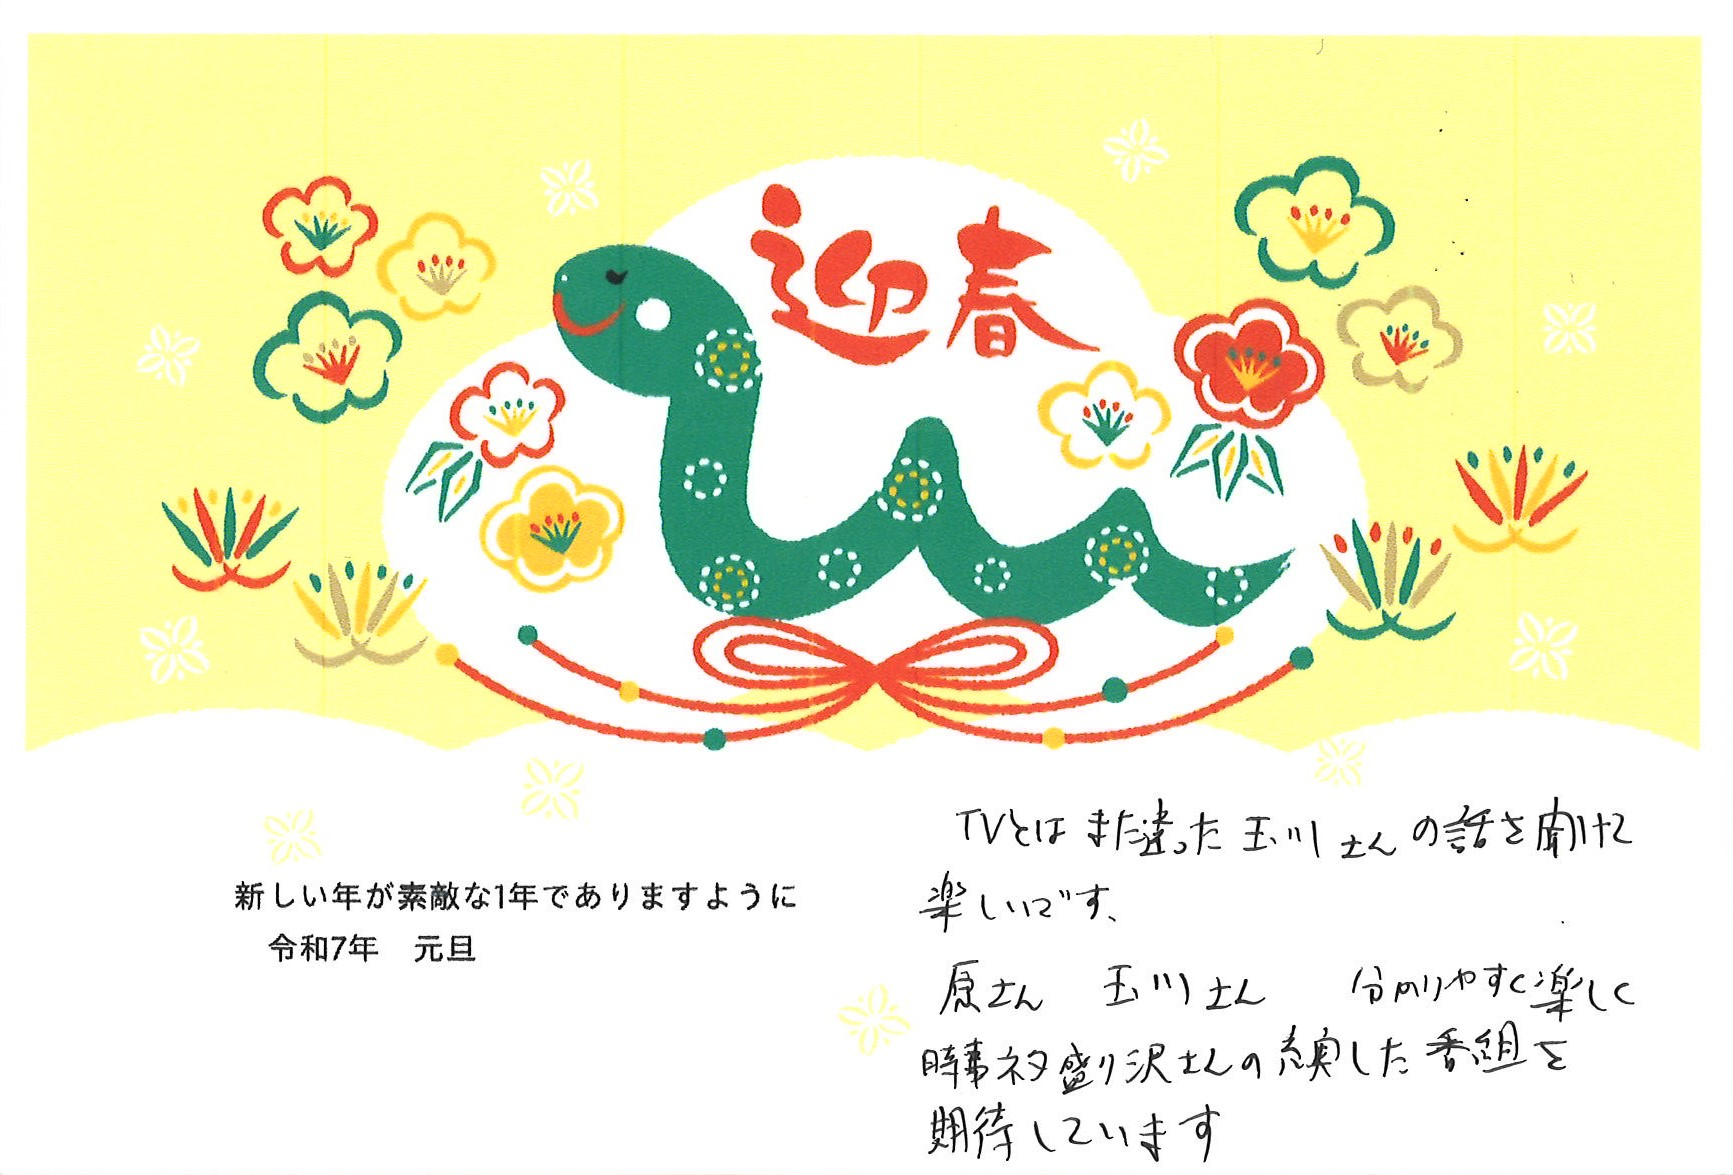 迎春
新しい年が素敵な1年でありますように
令和7年　元旦
TVとはまた違った玉川さんの話を聞けて
楽しいです、
原さん　玉川さん　分かりやすく楽しく
時事ネタ盛り沢さんの充実した番組を
期待しています